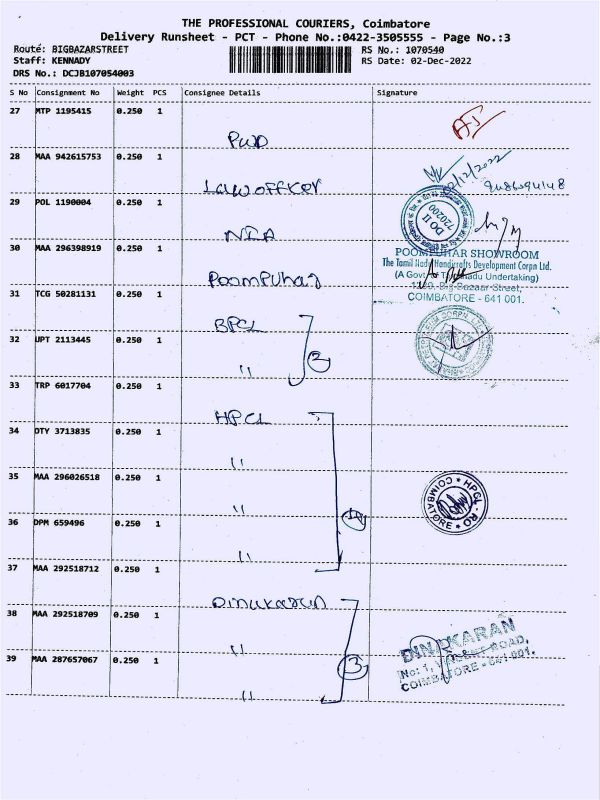 THE PROFESSIONAL COURIERS, Coimbatore
Delivery Runsheet - PCT - Phone No.:0422-3505555 - Page No.:3
Route: BIGBAZARSTREET
RS No.: 1070540
Staff: KENNADY
RS Date: 02-Dec-2022
DRS No.: DCJB107054003
S No Consignment No Weight PCS Consignee Details Signature
27 MTP 1195415 0.250 1
PWD
28 MAA 942615753 0.250 1
2/12/2022
Law officer
29 POL 1190004 0.250 1
DO II
720200
NIA
30 MAA 296398919 0.250 1
POOMPUHAR SHOWROOM
The Tamil Nadu Handicrafts Development Corpn Ltd.
Poompuhar
(A Govt Undertaking)
Big Bazaar Street,
31 TCG 50281131 0.250 1
COIMBATORE - 641 001.
BPCL
32 UPT 2113445 0.250 1
2
"
33 TRP 6017704 0.250 1
HPCL
34 DTY 3713835 0.250 1
"
35 MAA 296026518 0.250 1
HPCL - RO
COIMBATORE
"
36 DPM 659496 0.250 1
"
37 MAA 292518712 0.250 1
Dinakaran
38 MAA 292518709 0.250 1
DINAKARAN
"
No: 1, ROAD,
39 MAA 287657067 0.250 1
3
COIMBATORE - 641 001.
"